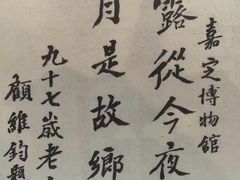 嘉定博物館
露從今夜
月是故鄉
九十七歲老
顧維鈞題